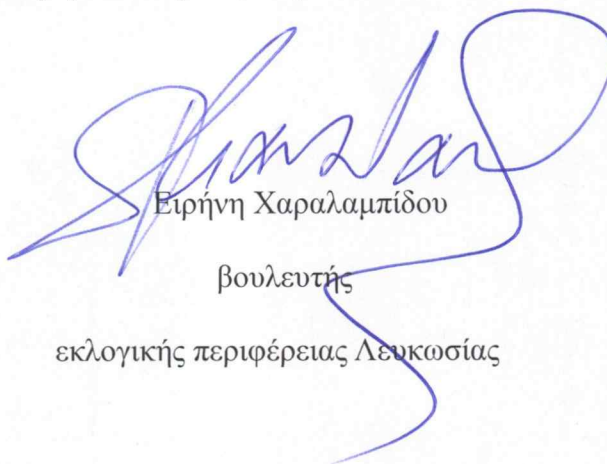 Ειρήνη Χαραλαμπίδου
βουλευτής
εκλογικής περιφέρειας Λευκωσίας